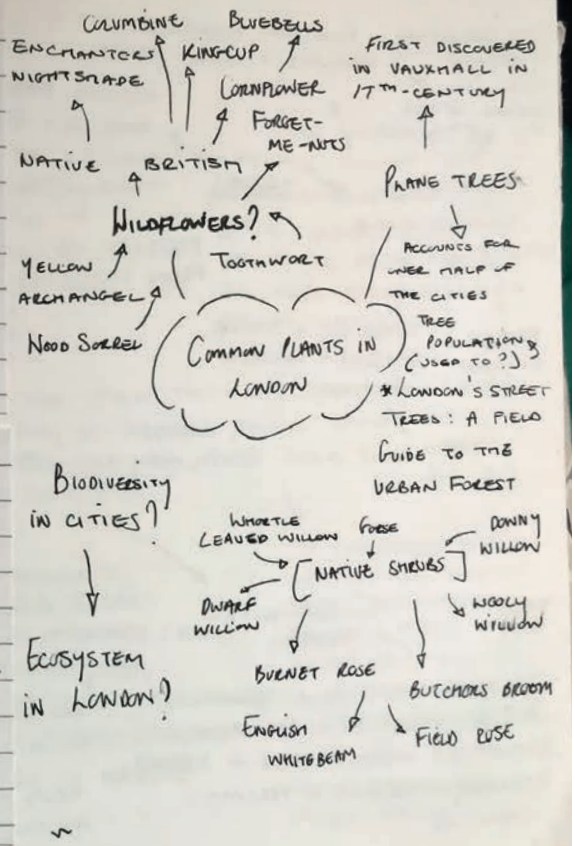 COLUMBINE
BLUEBELLS
ENCHANTORS
NIGHTSHADE
KINGCUP
CORNFLOWER
FORGET-
ME-NOTS
NATIVE BRITISH
WILDFLOWERS?
YELLOW
ARCHANGEL
TOOTHWORT
WOOD SORREL
FIRST DISCOVERED
IN VAUXHALL IN
17TH-CENTURY
PLANE TREES
ACCOUNTS FOR
OVER HALF OF
THE CITIES
TREE
POPULATION*
(USED TO?)
* LONDON'S STREET
TREES: A FIELD
GUIDE TO THE
URBAN FOREST
COMMON PLANTS IN
LONDON
BIODIVERSITY
IN CITIES?
ECOSYSTEM
IN LONDON?
WHORTLE
LEAVED WILLOW
GORSE
DOWNY
WILLOW
[NATIVE SHRUBS]
DWARF
WILLOW
WOOLY
WILLOW
BURNET ROSE
BUTCHORS BROOM
ENGLISH
WHITEBEAM
FIELD ROSE